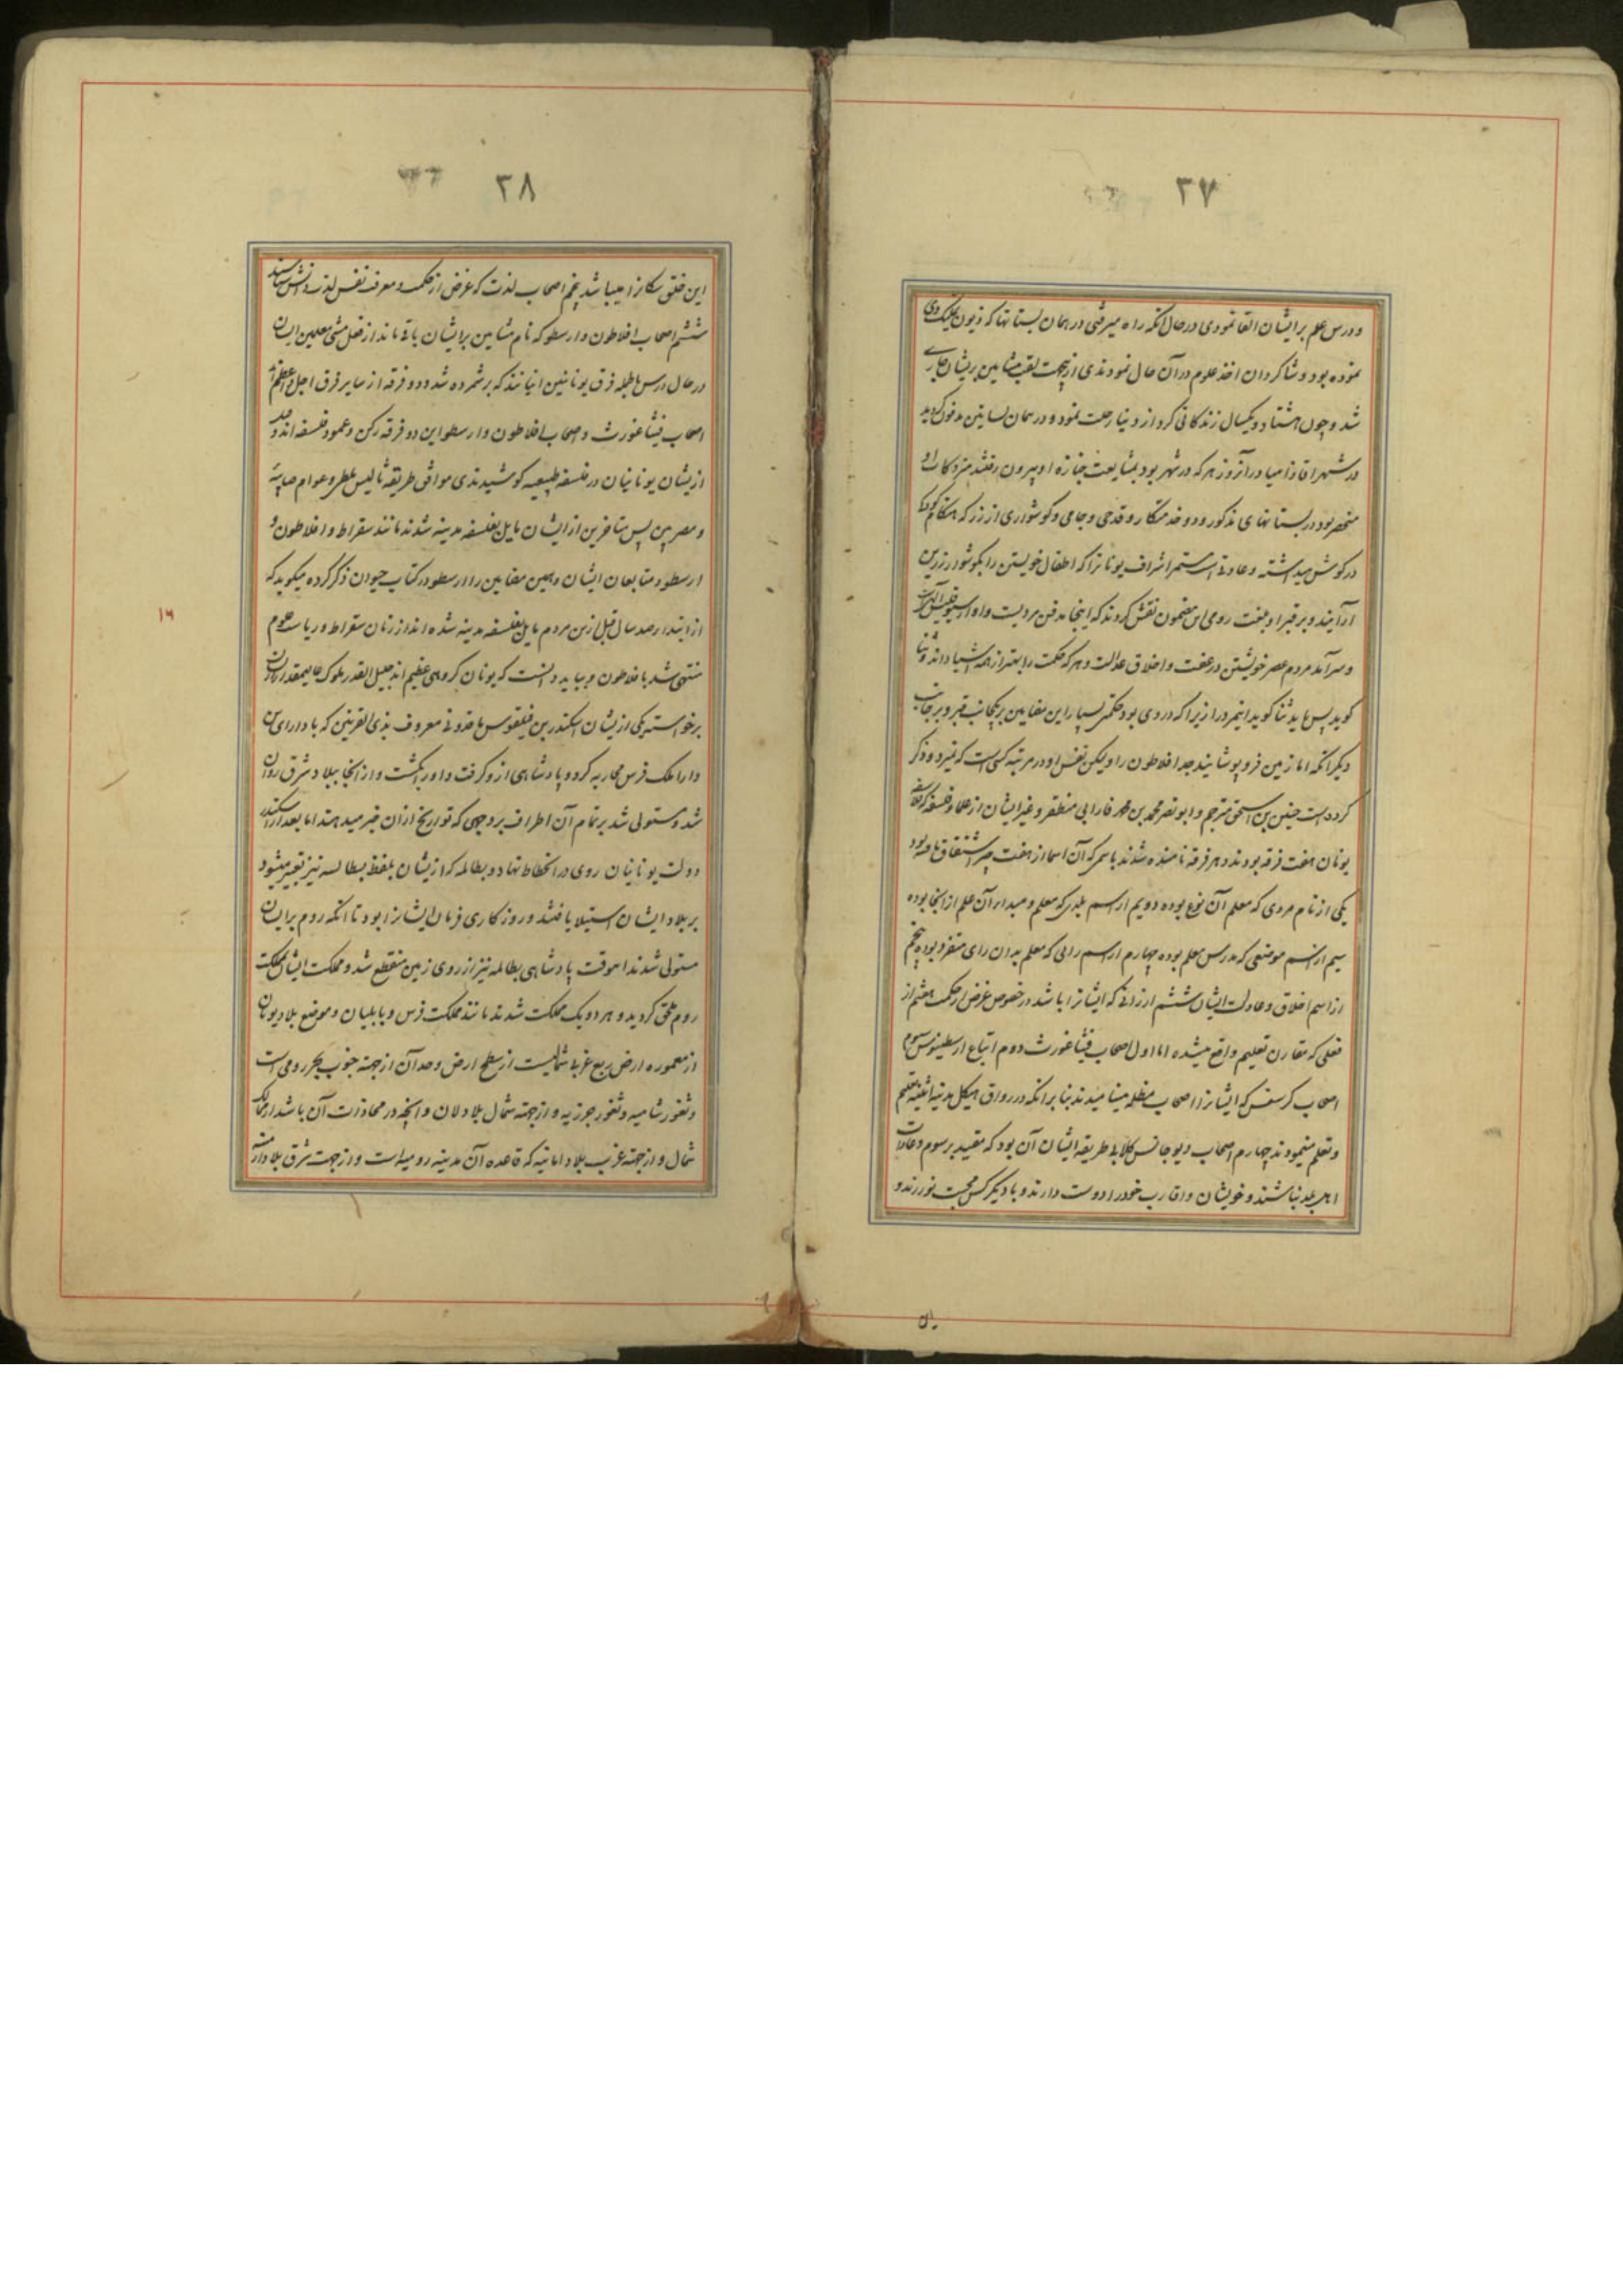 ۲۷
و درس علم بر ایشان القا نمودی در حال آنکه راه میرفتی در همان بستانها که ذیون تملیک وی
نموده بود و شاکردان اخذ علوم در آن حال نمودندی ازینجهت لقب مشایین بریشان جاری
شد و چون هشتاد و یکسال زندکانی کرد از دنیا رحلت نمود و در همان بساتین مدفون کردید
در شهر اقاذامیا و در آنروز هر که در شهر بود بمشایعت جنازه او بیرون رفتند متروکات او
منحصر بود در بستانهای مذکور و دو خدمتکار و قدحی و جامی و کوشواری از زر که هنکام کودکی
در کوش میداشته و عادتی است مستمر اشراف یونانرا که اطفال خویشتن را بکوشوار زرین
آرایند و بر قبر او بلغت رومی این مضمون نقش کردند که اینجا مدفن مردیست و او ارسطوقلیس آلهی است
و سرآمد مردم عصر خویشتن در عفت و اخلاق عدالت و هر که حکمت را بهتر از همه اشیا داند و ثنا
کوید پس باید ثنا کوید اینمرد را زیرا که در وی بود حکمتی بسیار این مضامین بر یکجانب قبر و بر جانب
دیکر آنکه اما زمین فرو پوشانید جسد افلاطون را ولیکن نفس او در مرتبه کسی است که نمیرد و ذکر
کرده است حنین بن اسحق مترجم و ابونصر محمد بن محمد فارابی منطقی و غیر ایشان از علماء فلسفه که فلاسفه
یونان هفت فرقه بودند و هر فرقه نامیده شدند باسمی که آن اسما از هفت چیز اشتقاق یافته بود
یکی از نام مردی که معلم آن نوع بوده دویم از اسم بلدی که معلم و مبداء آن علم از آنجا بوده
سیم از اسم موضعی که مدرس معلم بوده چهارم از اسم رایی که معلم بدان رای متفرد بوده پنجم
از اسم اخلاق و عادات ایشان ششم از رائی که ایشانرا باشد در خصوص غرض از حکمت هفتم از
فعلی که مقارن تعلیم واقع میشده اما اول اصحاب فیثاغورث دوم اتباع ارسطیفوس سیوم
اصحاب کرسفس که ایشانرا اصحاب مظله مینامیدند بنا بر آنکه در رواق هیکل مدینه اثینیه تعلیم
و تعلم مینمودند چهارم اصحاب دیوجانس کلابی طریقه ایشان آن بود که مقید برسوم و عادات
اهل بلد نباشند و خویشان و اقارب خود را دوست دارند و با دیکر کس محبت نورزند و
۵۰
۲۸
این خلق سکانرا میباشد پنجم اصحاب لذت که غرض از حکمت و معرفت نفس لذت دانش شناسند
ششم اصحاب افلاطون و ارسطو که نام مشایین بر ایشان باقی ماند از فعل مشی معلمین ایشان
در حال درس بالجمله فرق یونانیین اینانند که برشمرده شد و دو فرقه از سایر فرق اجل و اعظم اند
اصحاب فیثاغورث و اصحاب افلاطون و ارسطو این دو فرقه رکن و عمود فلسفه اند و
ازیشان یونانیان در فلسفه طبیعیه کوشیدندی موافق طریقه ثالیس ملطی و عوام صابئه
و مصریین پس متأخرین از ایشان مایل بفلسفه مدینه شدند مانند سقراط و افلاطون و
ارسطو و متابعان ایشان و همین مضامین را ارسطو در کتاب حیوان ذکر کرده میکوید که
از ابتداء صد سال قبل ازین مردم مایل بفلسفه مدینه شده اند از زمان سقراط و ریاست علوم
منتهی شد بافلاطون و بباید دانست که یونان کروهی عظیم اند جلیل القدر ملوک عالیمقدار ازیشان
برخواسته یکی ازیشان اسکندر بن فیلقوس ماقدونی معروف بذی القرنین که با دارای بن
دارا ملک فرس محاربه کرد و پادشاهی ازو کرفت و او را بکشت و از آنجا ببلاد شرق روان
شد و مستولی شد بر تمام آن اطراف بر وجهی که تواریخ از آن خبر میدهند اما بعد از اسکندر
دولت یونانیان روی در انحطاط نهاد و بطالمه که ازیشان بلفظ بطالسه نیز تعبیر میشود
بر بلاد ایشان استیلا یافتند و روزکاری فرمان ایشانرا بود تا آنکه روم بر ایشان
مستولی شدند آنوقت پادشاهی بطالمه نیز از روی زمین منقطع شد و مملکت ایشان بمملکت
روم ملحق کردید و هر دو یک مملکت شدند مانند مملکت فرس و بابلیان و موضع بلاد یونان
از معموره ارض ربع غربی شمالیست از سطح ارض و حد آن از جهة جنوب بحر رومی است
و ثغور شامیه و ثغور جزریه و از جهة شمال بلاد لان و آنچه در محاذات آن باشد از ممالک
شمال و از جهة غرب بلاد امانیه که قاعده آن مدینه رومیه است و از جهت شرق بلاد ارمنیه
۱۴